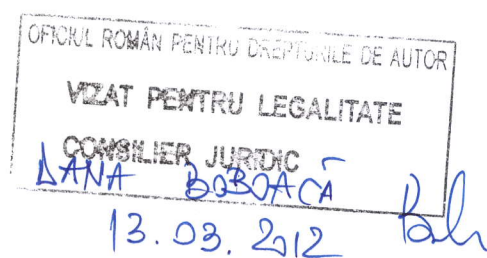 OFICIUL ROMÂN PENTRU DREPTURILE DE AUTOR
VIZAT PENTRU LEGALITATE
CONSILIER JURIDIC
DANA BOBOACĂ
13.03.2012